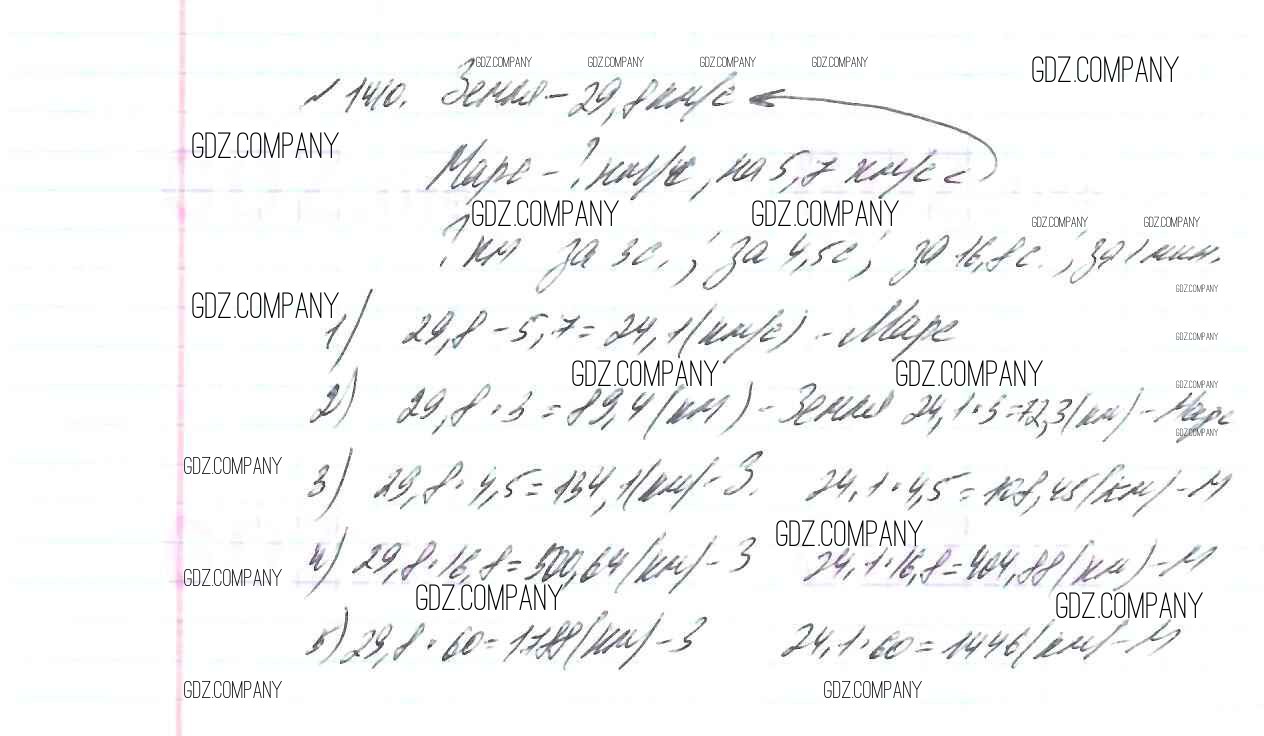 GDZ.COMPANY GDZ.COMPANY GDZ.COMPANY GDZ.COMPANY GDZ.COMPANY
№ 1410. Земля – 29,8 км/с
GDZ.COMPANY
Марс – ? км/с, на 5,7 км/с <
GDZ.COMPANY GDZ.COMPANY GDZ.COMPANY GDZ.COMPANY
? км за 3с.; за 4,5с; за 16,8с.; за 1 мин.
GDZ.COMPANY
GDZ.COMPANY
1) 29,8 – 5,7 = 24,1 (км/с) – Марс
GDZ.COMPANY
GDZ.COMPANY GDZ.COMPANY
GDZ.COMPANY
2) 29,8 · 3 = 89,4 (км) – Земля 24,1 · 3 = 72,3 (км) – Марс
GDZ.COMPANY
GDZ.COMPANY
3) 29,8 · 4,5 = 134,1 (км) – З. 24,1 · 4,5 = 108,45 (км) – М
GDZ.COMPANY
4) 29,8 · 16,8 = 500,64 (км) – З 24,1 · 16,8 = 404,88 (км) – М
GDZ.COMPANY
GDZ.COMPANY GDZ.COMPANY
5) 29,8 · 60 = 1788 (км) – З 24,1 · 60 = 1446 (км) – М
GDZ.COMPANY GDZ.COMPANY